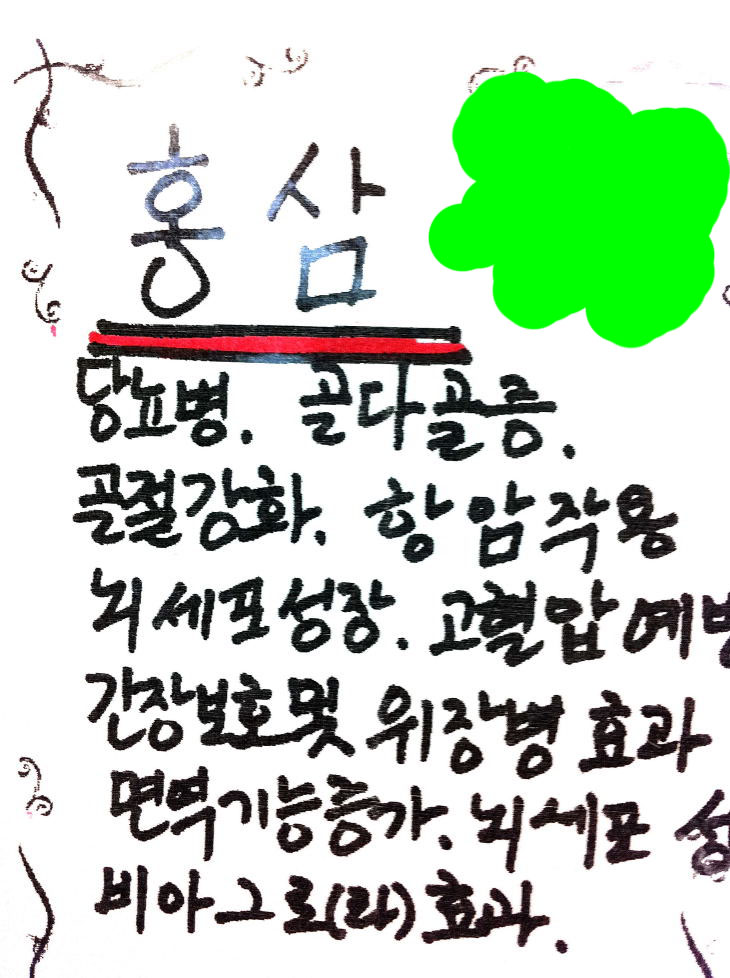 홍삼
당뇨병. 골다골증.
골절강화. 항암작용
뇌세포성장. 고혈압
간장보호및 위장병 효과
면역기능증가. 뇌세포
비아그로(라)효과.